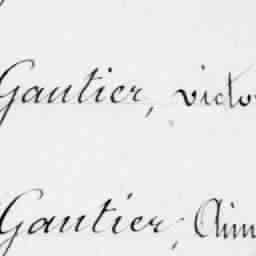 Gautier, victo
Gautier, Aim